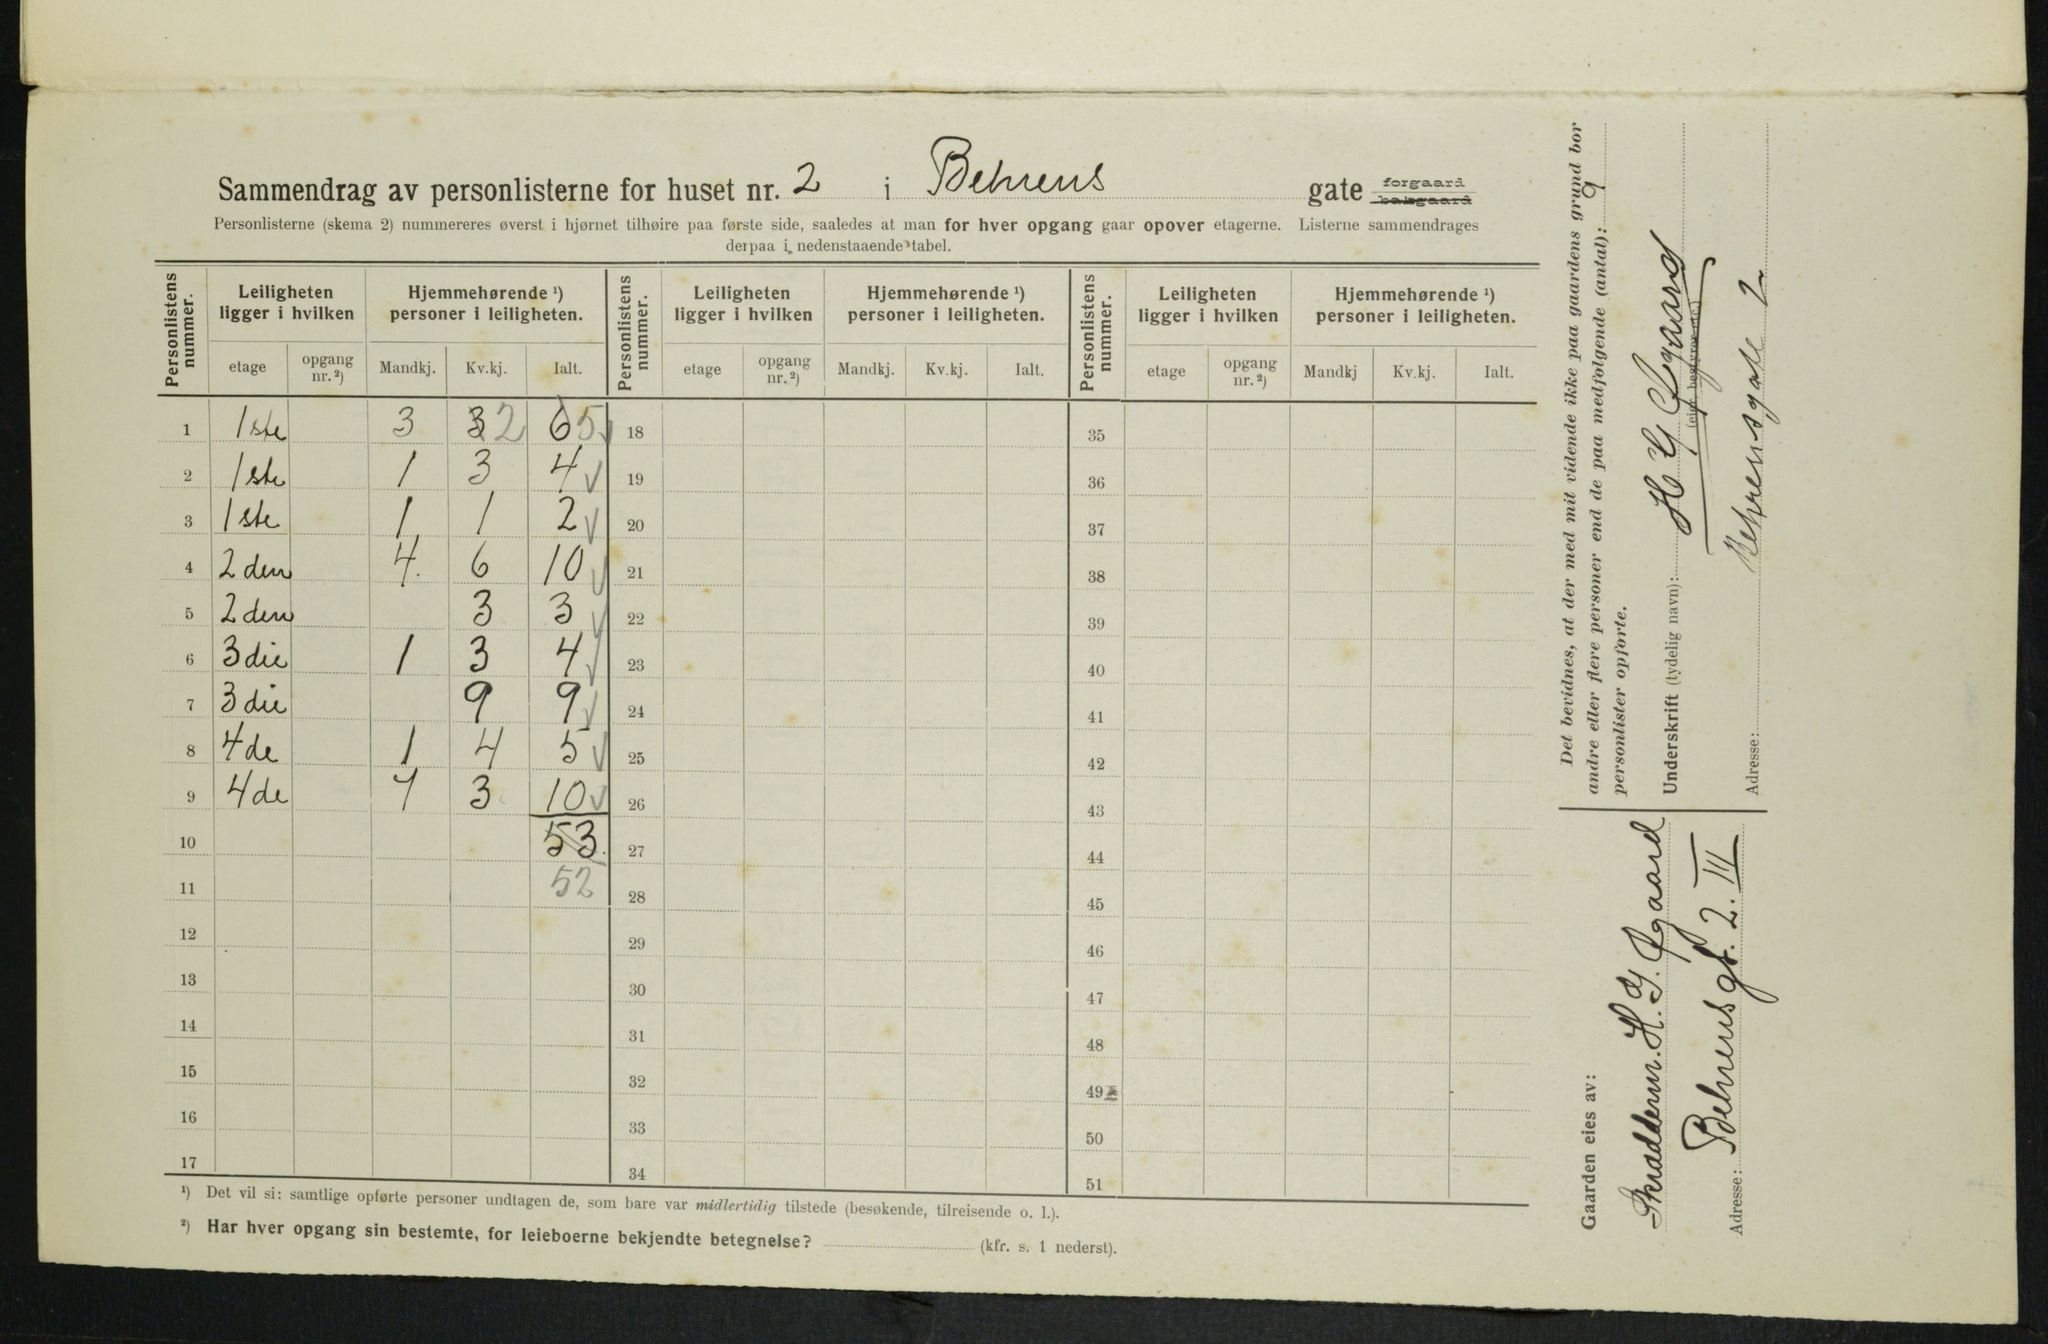 Sammendrag av personlisterne for huset nr. 2 i Behrens gate forgaard bakgaard
Personlisterne (skema 2) nummereres øverst i hjørnet tilhøire paa første side, saaledes at man for hver opgang gaar opover etagerne. Listerne sammendrages
derpaa i nedenstaaende tabel.
Personlistens nummer. Leiligheten ligger i hvilken Hjemmehørende ¹) personer i leiligheten. Personlistens nummer. Leiligheten ligger i hvilken Hjemmehørende ¹) personer i leiligheten. Personlistens nummer. Leiligheten ligger i hvilken Hjemmehørende ¹) personer i leiligheten.
etage opgang nr. ²) Mandkj. Kv.kj. Ialt. etage opgang nr. ²) Mandkj. Kv.kj. Ialt. etage opgang nr. ²) Mandkj Kv.kj. Ialt.
1 1ste 3 3 2 6 5 18 35
2 1ste 1 3 4 19 36
3 1ste 1 1 2 20 37
4 2den 4. 6 10 21 38
5 2den 3 3 22 39
6 3die 1 3 4 23 40
7 3die 9 9 24 41
8 4de 1 4 5 25 42
9 4de 7 3 10 26 43
10 53. 27 44
11 52 28 45
12 29 46
13 30 47
14 31 48
15 32 49
16 33 50
17 34 51
¹) Det vil si: samtlige opførte personer undtagen de, som bare var midlertidig tilstede (besøkende, tilreisende o. l.).
²) Har hver opgang sin bestemte, for leieboerne bekjendte betegnelse? (kfr. s. 1 nederst).
Det bevidnes, at der med mit vidende ikke paa gaardens grund bor
andre eller flere personer end de paa medfølgende (antal): 9
personlister opførte.
Underskrift (tydelig navn): H G
(eier, bestyrer etc.)
Adresse: Behrensgate 2
Gaarden eies av:
H. G.
Adresse: Behrensgt. 2. III